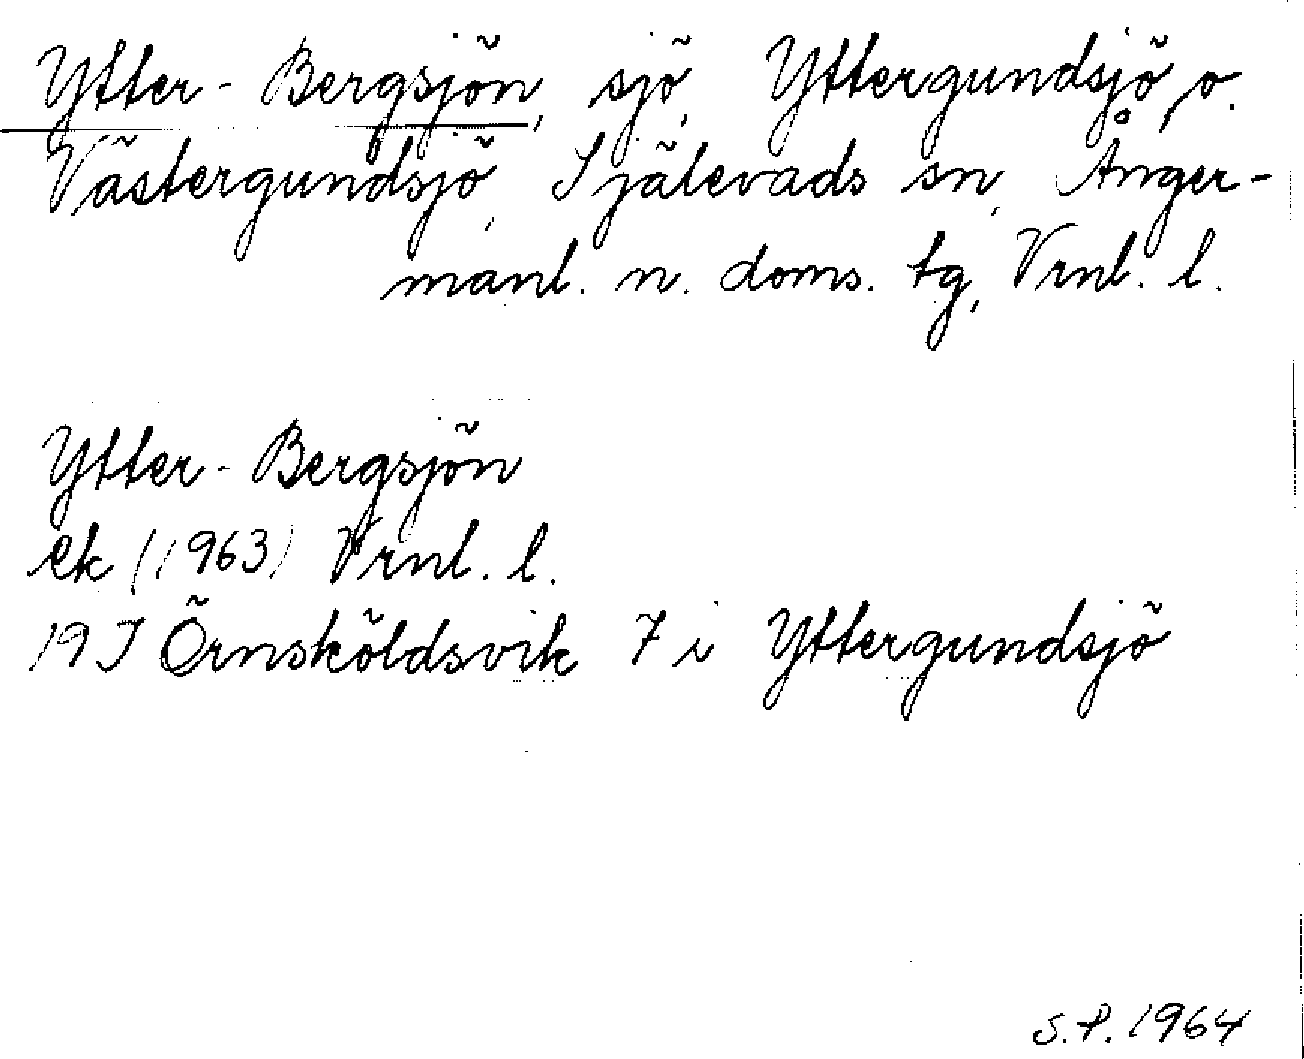 Ytter-Bergsjön, sjö, Yttergundsjö, o.
Västergundsjö, Själevads sn, Ånger-
manl. n. doms. tg, Vrnl. l.
Ytter-Bergsjön
ek (1963) Vrnl. l.
19 I Örnsköldsvik 7 i Yttergundsjö
S.P. 1964